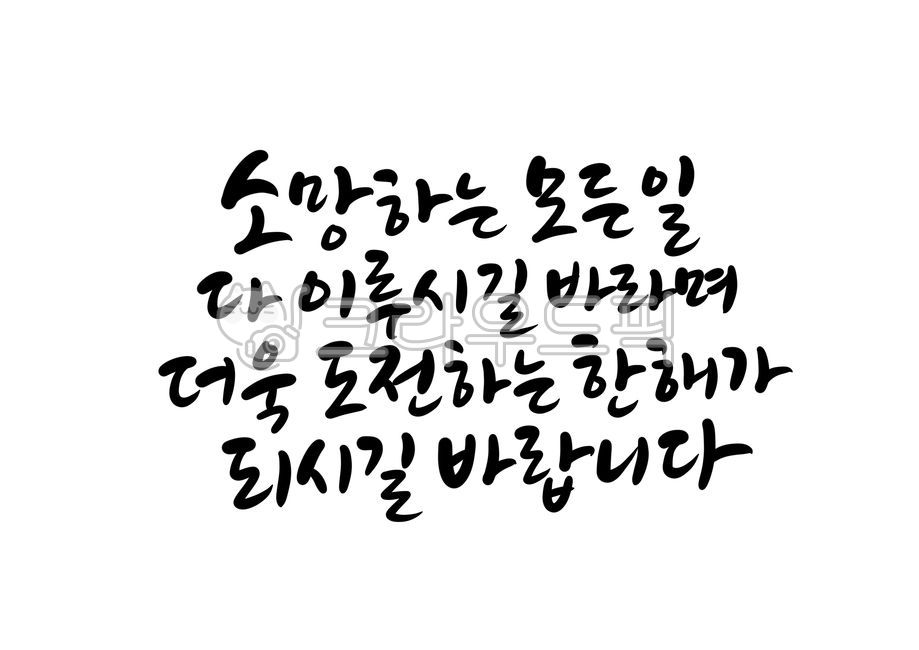 소망하는 모든 일
다 이루시길 바라며
크라우드픽
더욱 도전하는 한 해가
되시길 바랍니다